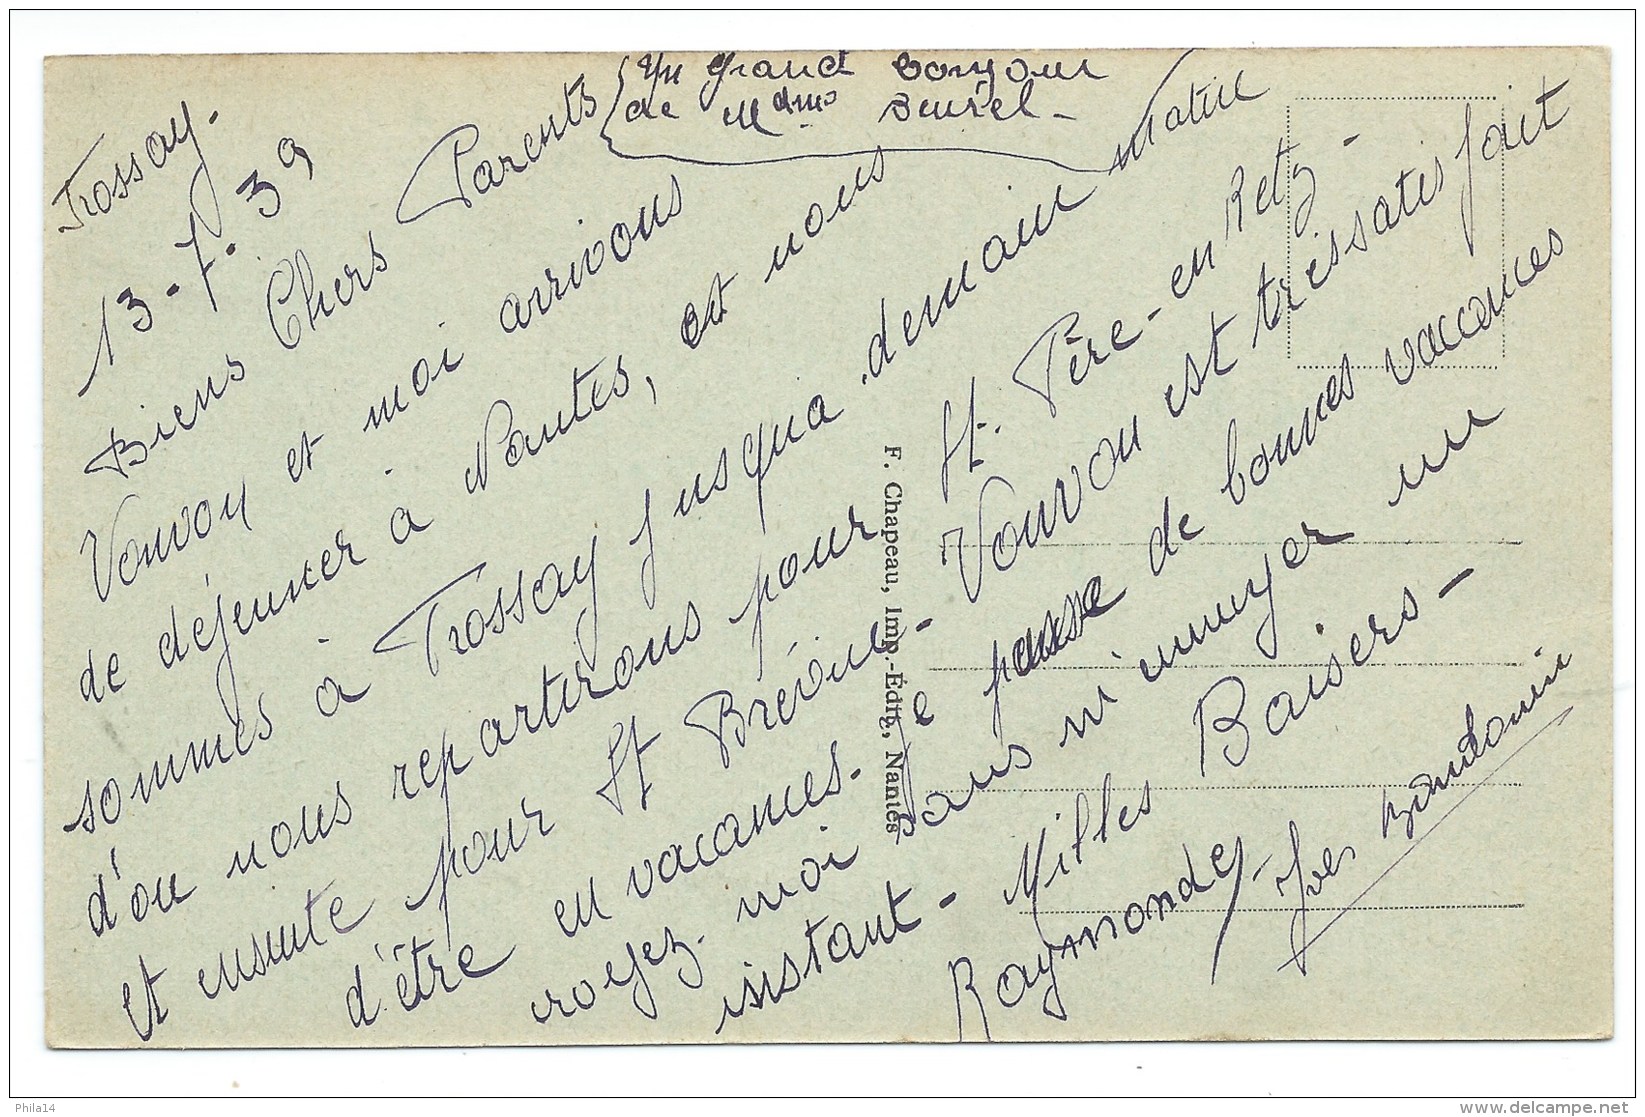 Frossay.
13-7-39
Biens Chers Parents
Un grand bonjour
de Mdme Burel-
Vonvon et moi arrivons
de déjeuner à Nantes, et nous
sommes à Frossay jusqua demain matin
d'ou nous repartirons pour St. Père-en Retz-
et ensuite pour St Brévin- Vonvon est très satisfait
d'être en vacances. Je pense de bonnes vacances
croyez-moi sans m'ennuyer un
instant- Milles Baisers-
Raymonde
Yves Baudouin
F. Chapeau, Imp.-Édit., Nantes
Phila14
www.delcampe.net